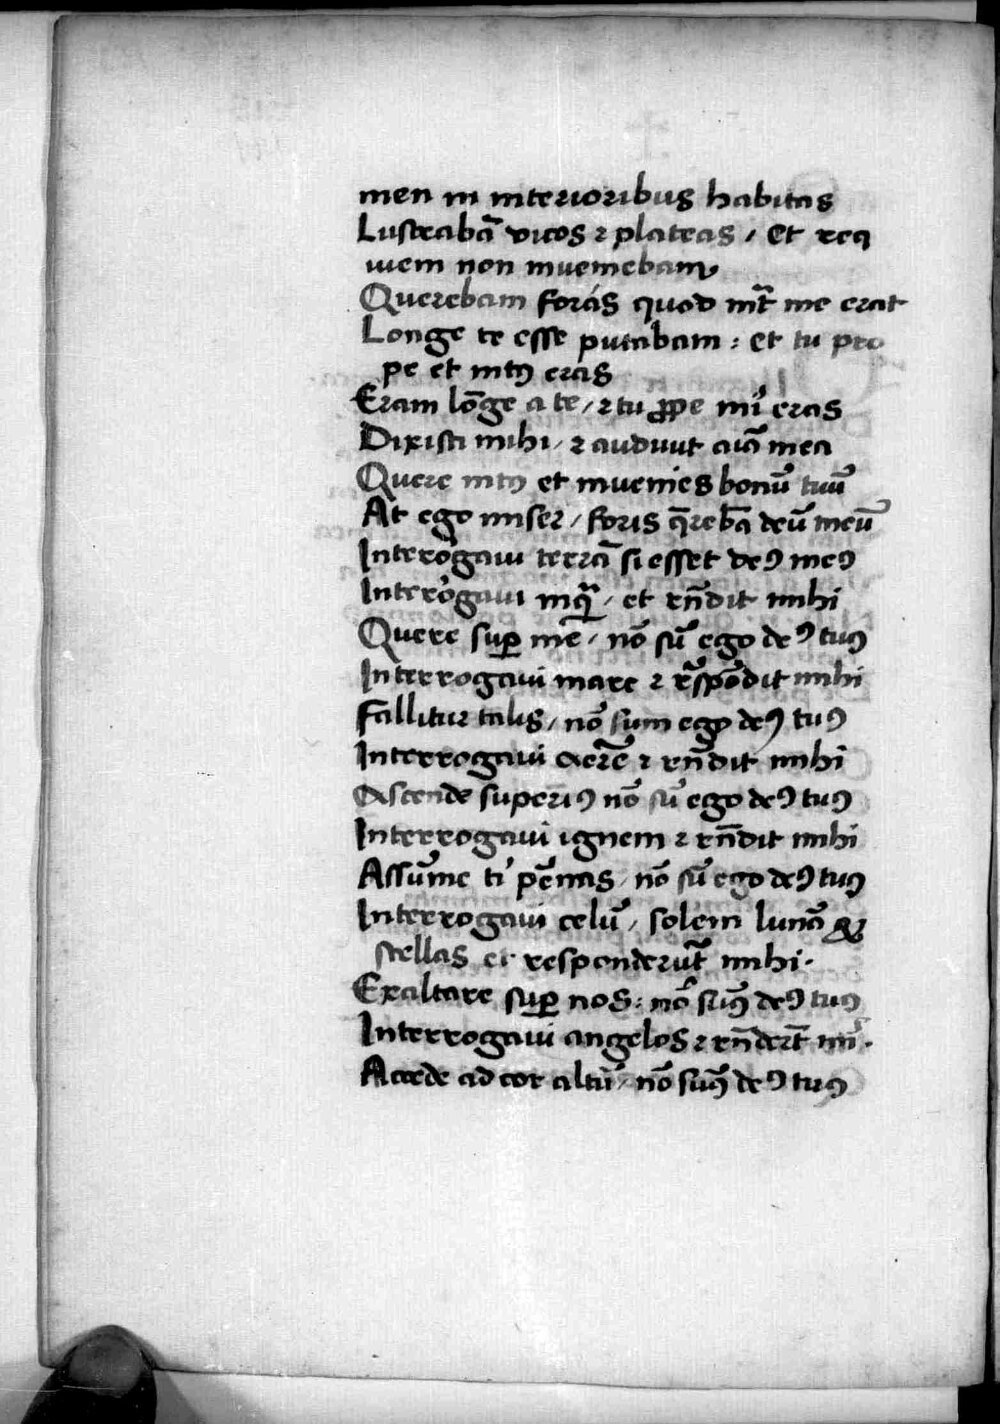 men in interioribus habitas
Lustrabā vicos ⁊ plateas / Et req
uiem non inueniebam
Querebam foras quod int̄ me erat
Longe te esse putabam : et tu pro
pe et intꝰ eras
Eram lōge a te / ⁊ tu ꝓpe mi eras
Dixisti mihi / ⁊ audiuit aīa mea
Quere intꝰ et inuenies bonū tuū
At ego miser / foris q̄rebā deū meū
Interogaui terrā si esset deꝰ meꝰ
Interogaui inquā / et rn̄dit mihi
Quere suꝑ me / nō sū ego deꝰ tuꝰ
Interrogaui mare ⁊ rn̄spōdit mihi
Fallitur talis / nō sum ego deꝰ tuꝰ
Interrogaui aerē ⁊ rn̄dit mihi
Ascende superiꝰ nō sū ego deꝰ tuꝰ
Interrogaui ignem ⁊ rn̄dit mihi
Assūme ti pēnas / nō sū ego deꝰ tuꝰ
Interrogaui celū / solem lunā &
stellas et responderūt mihi .
Exaltare suꝑ nos : nō sumꝰ deꝰ tuꝰ
Interrogaui angelos ⁊ rn̄dert̄ mi .
Accede ad cor altū / nō sumꝰ deꝰ tuꝰ